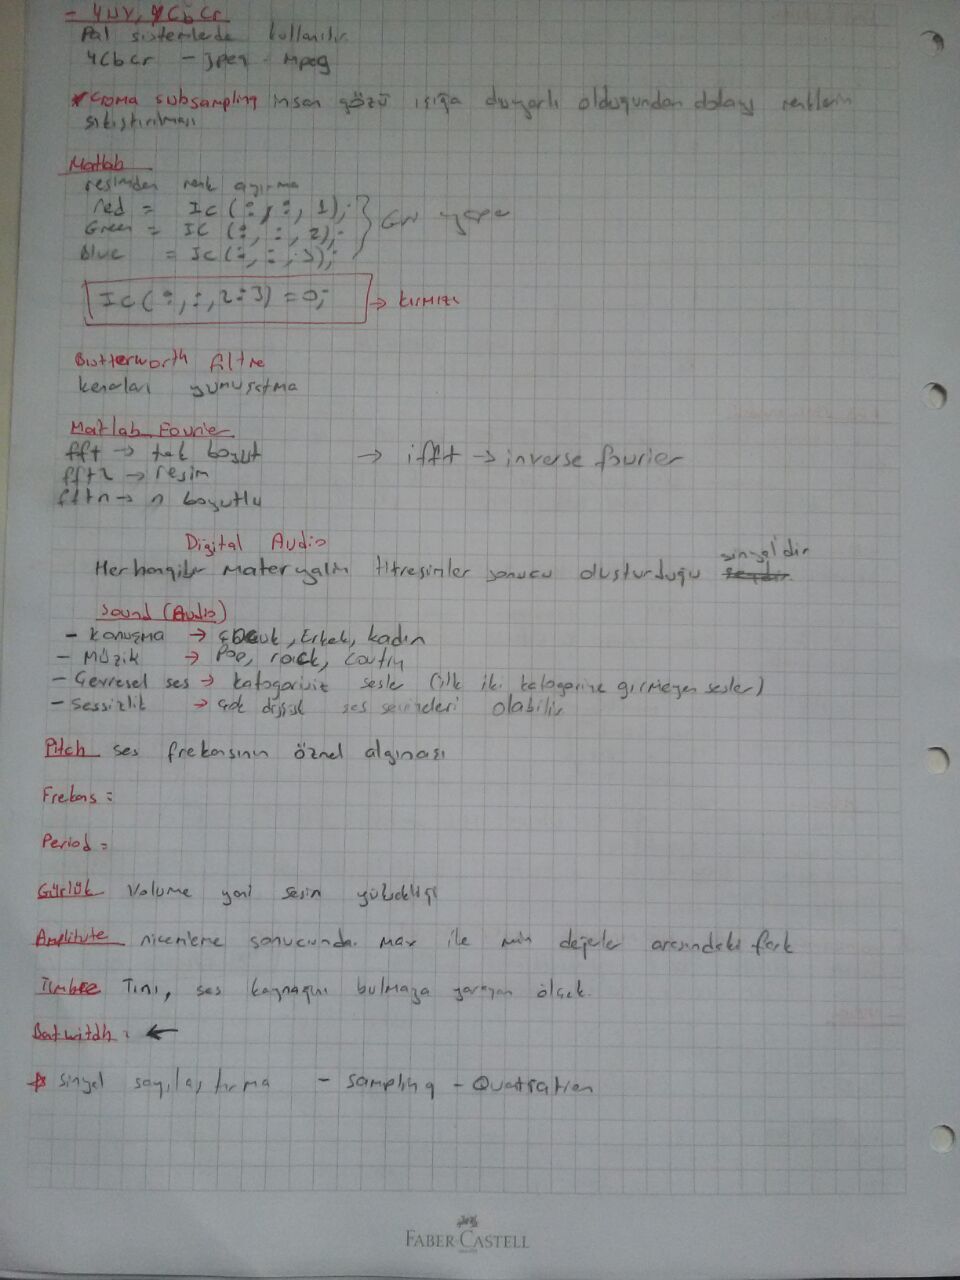 - YUV, YCbCr
Pal sistemlerde kullanılır.
YCbCr - Jpeg - Mpeg
*Croma subsampling insan gözü ışığa duyarlı olduğundan dolayı renklerin
sıkıştırılması
Matlab
resimden renk ayırma
red = Ic(:,:,1);
Green = Ic(:,:,2);
Blue = Ic(:,:,3);
Ic(:,:,2:3)=0; → kırmızı
Butterworth filtre
kenarları yumuşatma
Matlab Fourier
fft → tek boyut → ifft → inverse fourier
fft2 → resim
fftn → n boyutlu
Digital Audio
Herhangi bir materyalin titreşimler sonucu oluşturduğu sinyaldir
Sound (Audio)
- Konuşma → çocuk, Erkek, kadın
- Müzik → Pop, rock,
- Çevresel ses → katagorisiz sesler (ilk iki katagorine girmeyen sesler)
- Sessizlik → çok düşük ses olabilir
Pitch ses frekansının öznel algınası
Frekans =
Period =
Gürlük Volume yani sesin yüksekliği
Amplitute nicemleme sonucunda. max ile min değerler arasındaki fark
Timbre Tını, ses kaynağını bulmaya yarayan ölçek.
Batwitdh : ←
* sinyal sayılaştırma - sampling - Quatsation
FABER-CASTELL